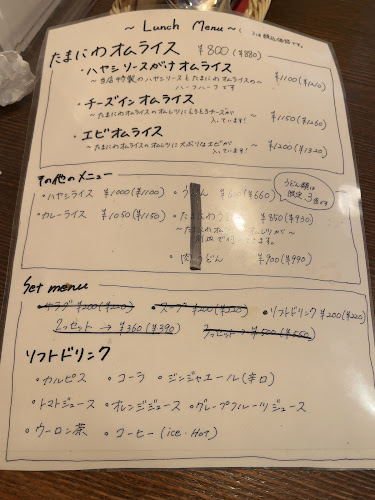 ~ Lunch Menu ~ ( )は税込価格です。
たまにわオムライス ¥800(¥880)
・ハヤシソースがけオムライス ¥1100(¥1210)
～当店特製のハヤシソースとたまにわオムライスの～
ハーフハーフです
・チーズインオムライス ～ ¥1150(¥1260)
～たまにわオムライスのオムレツにとろとろチーズが
入っています!
・エビオムライス ～ ¥1200(¥1320)
～たまにわオムライスのオムレツに大ぶりなエビが
入っています!
その他のメニュー
・ハヤシライス ¥1000(¥1100)
・カレーライス ¥1050(¥1150)
・うどん ¥600(¥660)
うどん類は
限定3食です
・たまにわう ¥850(¥930)
～たまにわオムレツが～
付いてきます。
・肉うどん ¥900(¥990)
Set menu
・サラダ ¥200(¥220) ・スープ ¥200(¥220) ・ソフトドリンク ¥200(¥220)
2つセット → ¥360(¥390) 3つセット → ¥500(¥550)
ソフトドリンク
・カルピス ・コーラ ・ジンジャエール(辛口)
・トマトジュース ・オレンジジュース ・グレープフルーツジュース
・ウーロン茶 ・コーヒー(ice・Hot)